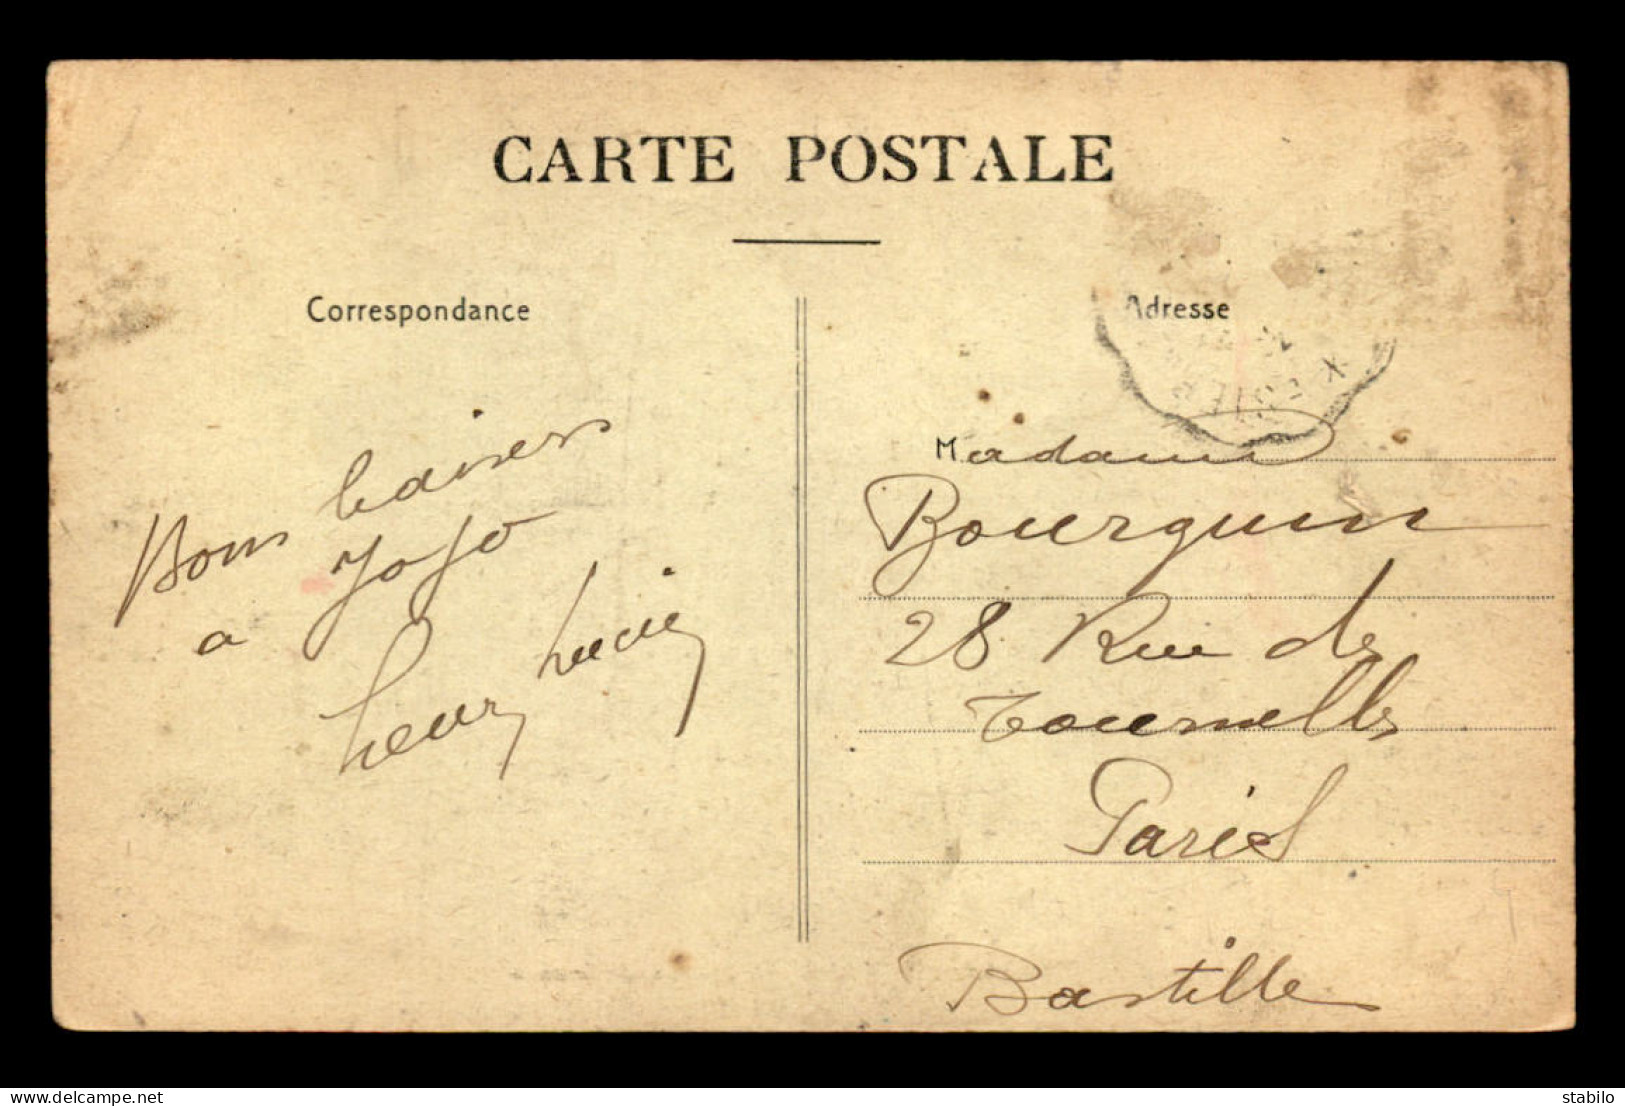 CARTE POSTALE
Correspondance
Bons baisers
a Jojo
Henry Lucie
Adresse
Madame
Bourguin
28 Rue de
Tournelles
Paris
Bastille
www.delcampe.net
stabilo